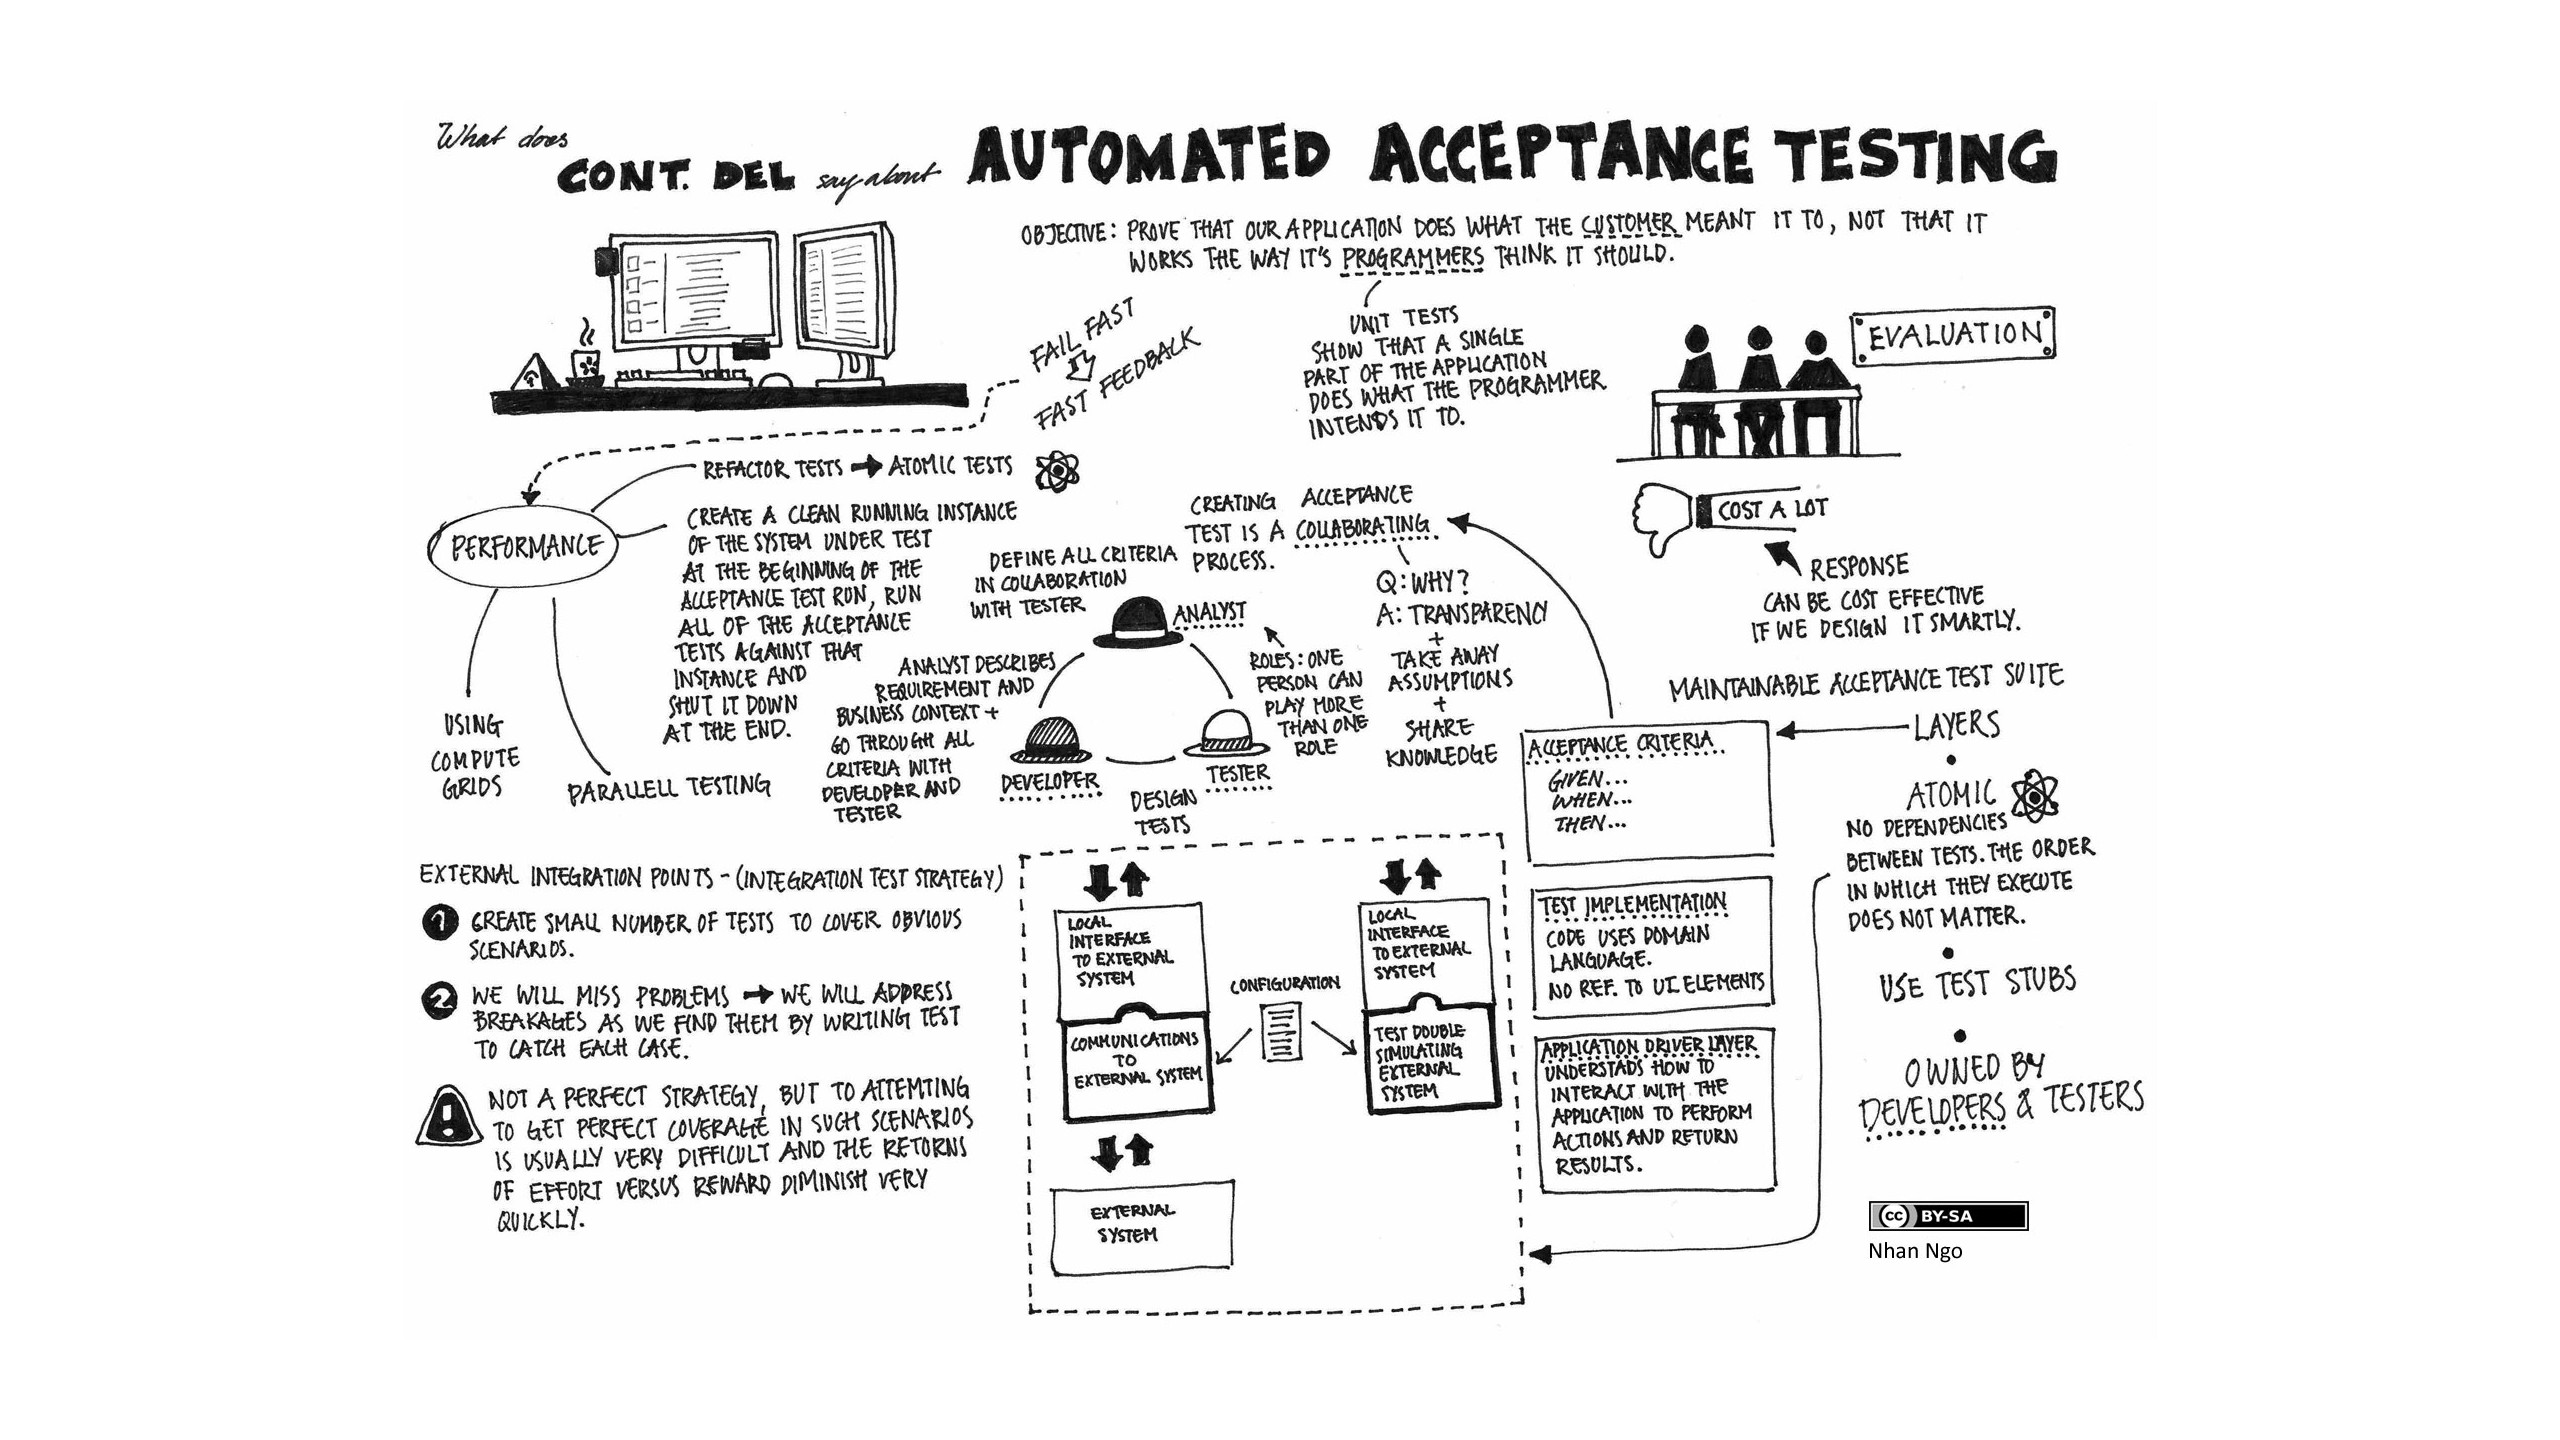 What does
CONT. DEL say about AUTOMATED ACCEPTANCE TESTING
OBJECTIVE: PROVE THAT OUR APPLICATION DOES WHAT THE CUSTOMER MEANT IT TO, NOT THAT IT
WORKS THE WAY IT'S PROGRAMMERS THINK IT SHOULD.
UNIT TESTS
SHOW THAT A SINGLE
PART OF THE APPLICATION
DOES WHAT THE PROGRAMMER
INTENDS IT TO.
FAIL FAST
FAST FEEDBACK
EVALUATION
COST A LOT
RESPONSE
CAN BE COST EFFECTIVE
IF WE DESIGN IT SMARTLY.
PERFORMANCE
REFACTOR TESTS → ATOMIC TESTS
CREATE A CLEAN RUNNING INSTANCE
OF THE SYSTEM UNDER TEST
AT THE BEGINNING OF THE
ACCEPTANCE TEST RUN, RUN
ALL OF THE ACCEPTANCE
TESTS AGAINST THAT
INSTANCE AND
SHUT IT DOWN
AT THE END.
USING
COMPUTE
GRIDS
PARALLELL TESTING
CREATING ACCEPTANCE
TEST IS A COLLABORATING
PROCESS.
Q: WHY?
A: TRANSPARENCY
+
TAKE AWAY
ASSUMPTIONS
+
SHARE
KNOWLEDGE
DEFINE ALL CRITERIA
IN COLLABORATION
WITH TESTER
ANALYST
ROLES: ONE
PERSON CAN
PLAY MORE
THAN ONE
ROLE
ANALYST DESCRIBES
REQUIREMENT AND
BUSINESS CONTEXT +
GO THROUGH ALL
CRITERIA WITH
DEVELOPER AND
TESTER
DEVELOPER
TESTER
DESIGN
TESTS
MAINTAINABLE ACCEPTANCE TEST SUITE
LAYERS
•
ATOMIC
NO DEPENDENCIES
BETWEEN TESTS. THE ORDER
IN WHICH THEY EXECUTE
DOES NOT MATTER.
•
USE TEST STUBS
•
OWNED BY
DEVELOPERS & TESTERS
ACCEPTANCE CRITERIA
GIVEN...
WHEN...
THEN...
TEST IMPLEMENTATION
CODE USES DOMAIN
LANGUAGE.
NO REF. TO UI ELEMENTS
APPLICATION DRIVER LAYER
UNDERSTADS HOW TO
INTERACT WITH THE
APPLICATION TO PERFORM
ACTIONS AND RETURN
RESULTS.
EXTERNAL INTEGRATION POINTS - (INTEGRATION TEST STRATEGY)
1 CREATE SMALL NUMBER OF TESTS TO COVER OBVIOUS
SCENARIOS.
2 WE WILL MISS PROBLEMS → WE WILL ADDRESS
BREAKAGES AS WE FIND THEM BY WRITING TEST
TO CATCH EACH CASE.
! NOT A PERFECT STRATEGY, BUT TO ATTEMTING
TO GET PERFECT COVERAGE IN SUCH SCENARIOS
IS USUALLY VERY DIFFICULT AND THE RETURNS
OF EFFORT VERSUS REWARD DIMINISH VERY
QUICKLY.
LOCAL
INTERFACE
TO EXTERNAL
SYSTEM
COMMUNICATIONS
TO
EXTERNAL SYSTEM
EXTERNAL
SYSTEM
CONFIGURATION
LOCAL
INTERFACE
TO EXTERNAL
SYSTEM
TEST DOUBLE
SIMULATING
EXTERNAL
SYSTEM
cc BY-SA
Nhan Ngo